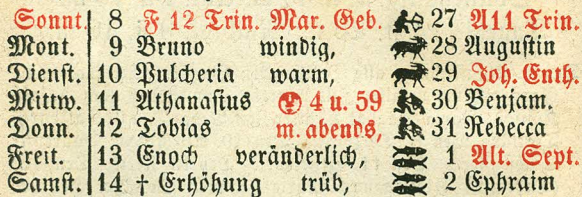 Sonnt. 8 F 12 Trin. Mar. Geb. 27 A11 Trin.
Mont. 9 Bruno windig, 28 Augustin
Dienst. 10 Pulcheria warm, 29 Joh. Enth.
Mittw. 11 Athanasius 4 u. 59 30 Benjam.
Donn. 12 Tobias m. abends, 31 Rebecca
Freit. 13 Enoch veränderlich, 1 Alt. Sept.
Samst. 14 † Erhöhung trüb, 2 Ephraim